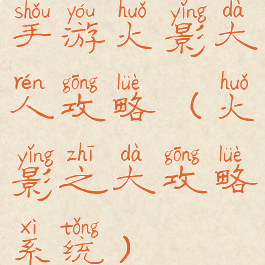 shǒu yóu huǒ yǐng dà
手游火影大
rén gōng lüè huǒ
人攻略（火
yǐng zhī dà gōng lüè
影之大攻略
xì tǒng
系统）